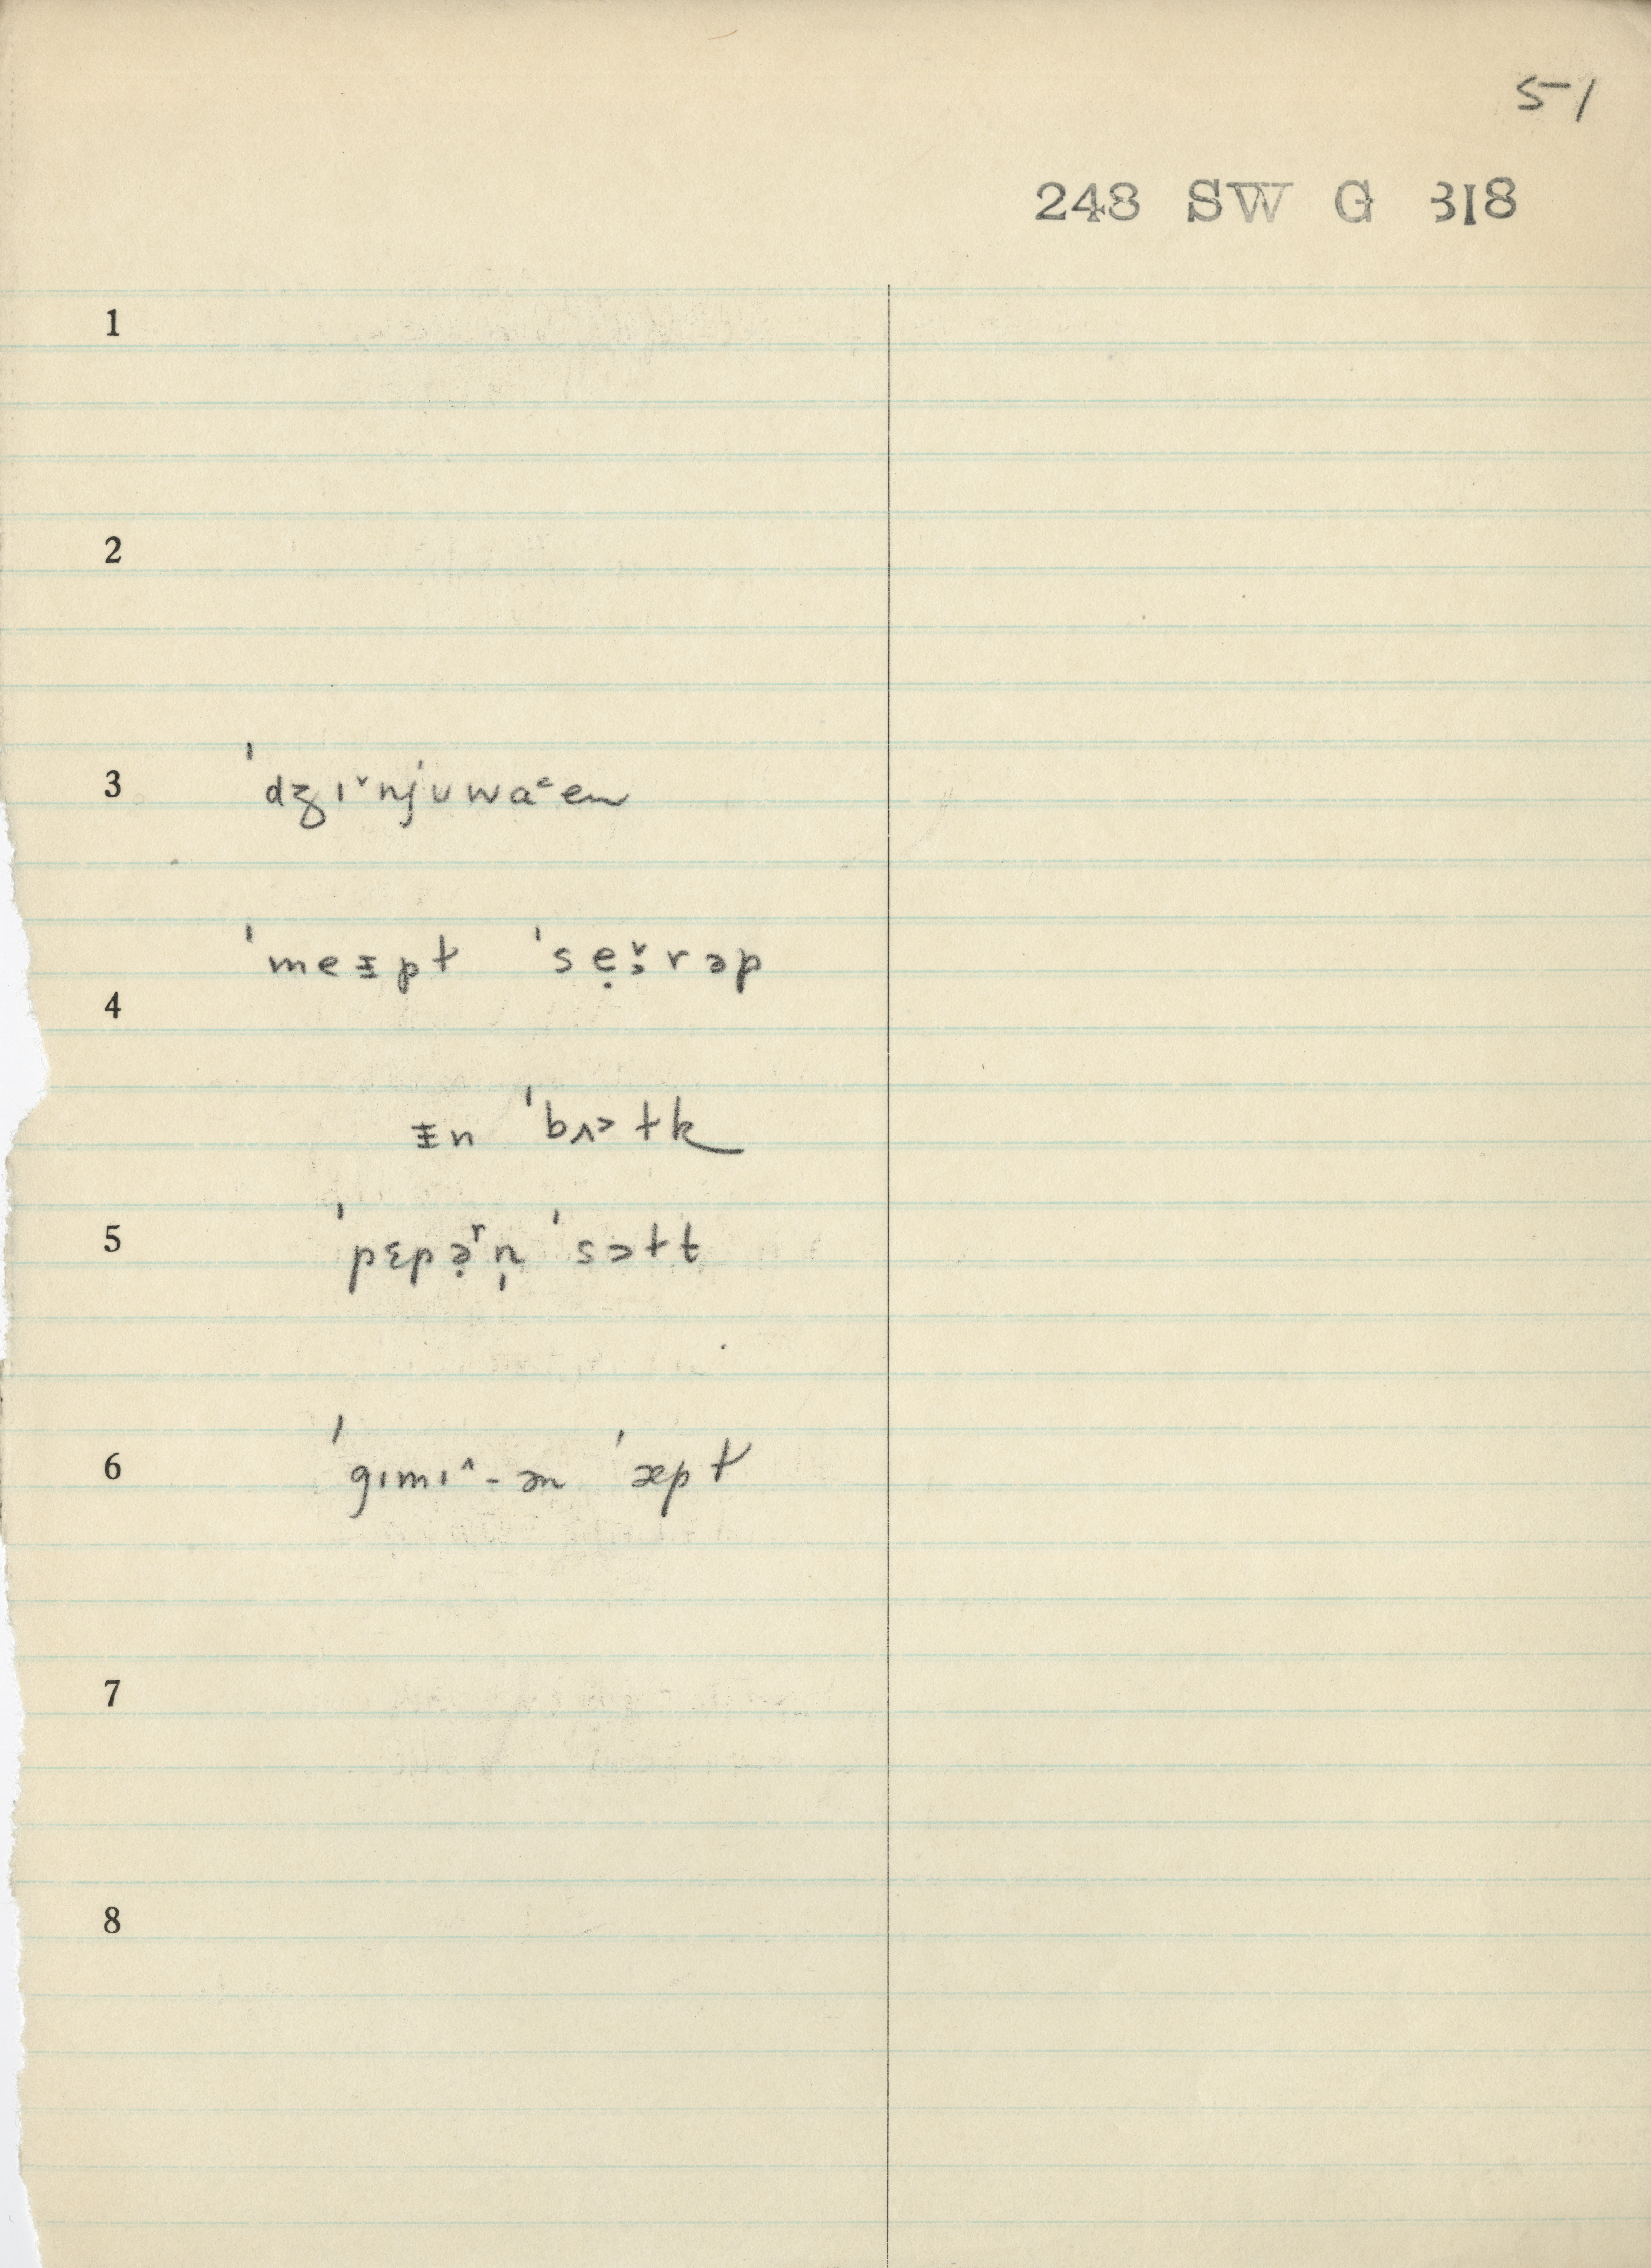 51
248 SW G 318
1
2
3 ˈdʒɪ˅njʊwaᵋen
ˈmeɪpɫ ˈsẹ˅ːrəp
4
ɪn ˈbʌɔɫk
5 ˈpɛpə̣ʳn̩ ˈsɔɫt
6 ˈgɪmɪ^-ən ˈæpɫ
7
8